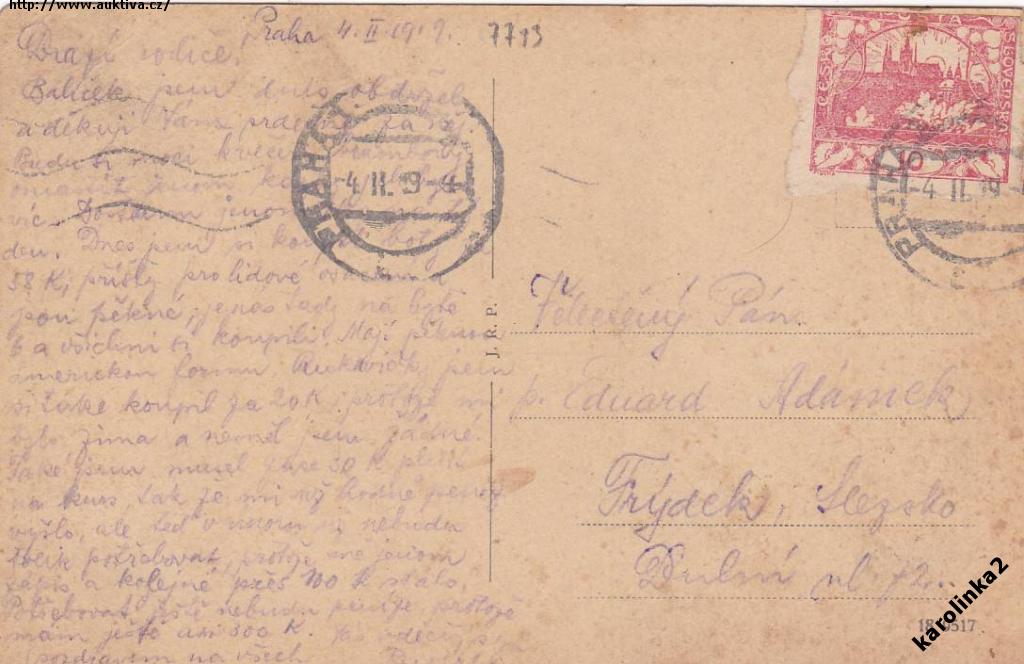 http://www.auktiva.cz/
Praha 4.II.1919.
7713
Drazí rodiče.
Balíček jsem dnes obdržel
a děkuji Vám srdečně za něj.
Budu si moci
jenom
víc. Dostanu jenom
den. Dnes jsem si koupil boty
58 K, příští pro lidové
jsou pěkné, je nás tady na bytě
6 a všichni si koupili. Mají pěknou
americkou formu. Rukavičky jsem
si také koupil za 20 K, protože mi
bylo zima a neměl jsem žádné.
Také jsem musel zase 30 K platit
na kurs, tak že mi už hodně peněz
vyšlo, ale teď v únoru už nebudu
tolik potřebovat, protože mne jenom
zápis a kolejné přes 100 K stálo.
Potřebovat ještě nebudu peníze protože
mám ještě asi 300 K. Váš vděčný s
pozdravem na všech
PRAHA
-4.II.19 -4
3
PRAHA
-4.II.19
3
ČESKO SLOVENSKÁ
J. R. P.
Velectěný Pán
p. Eduard Adámek
Frýdek, Slezsko
ul 72.
18 9517
karolinka2